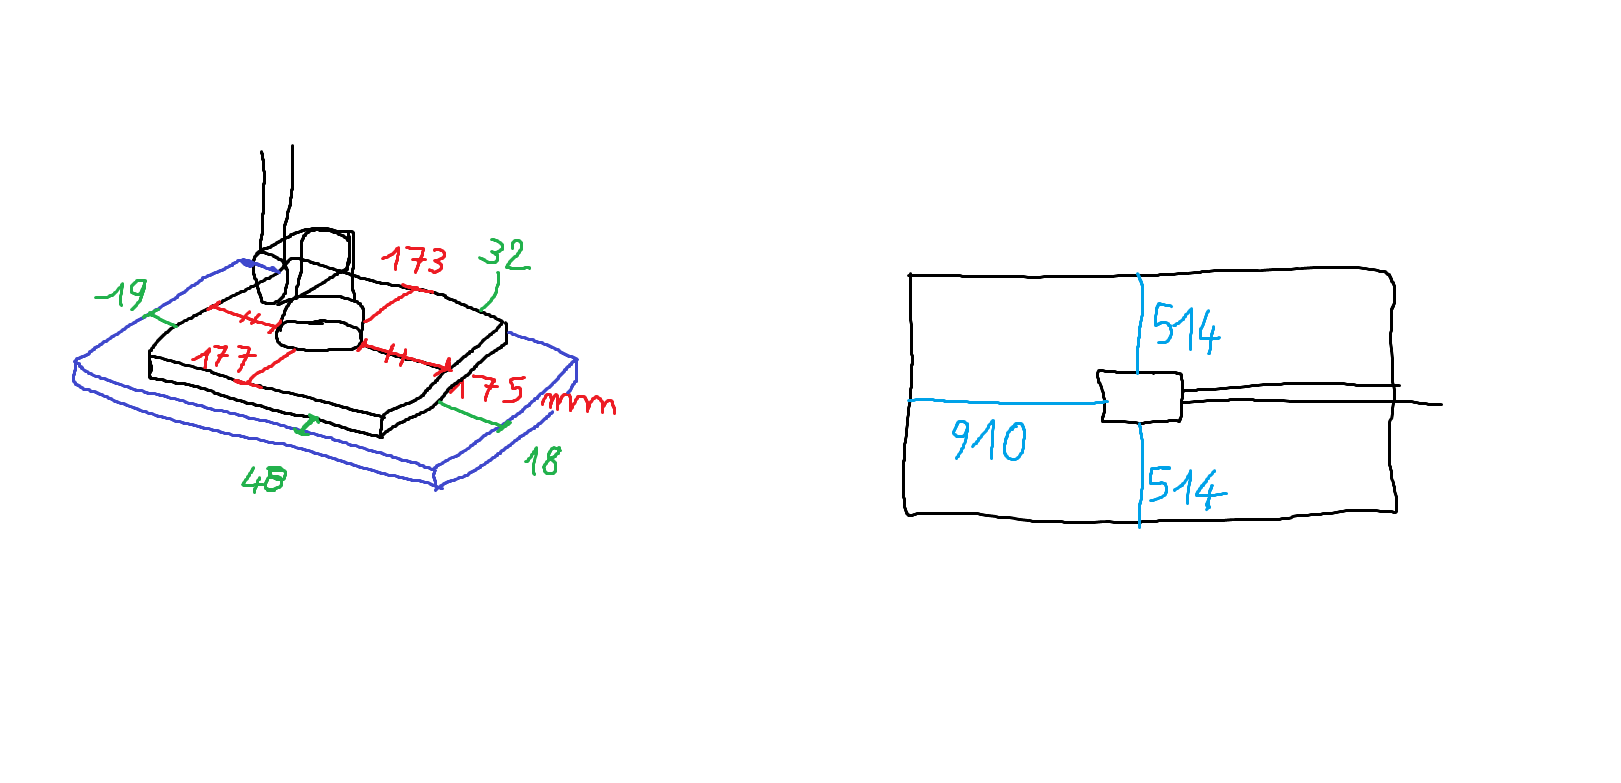 173
32
19
177
175 mm
48
18
514
910
514